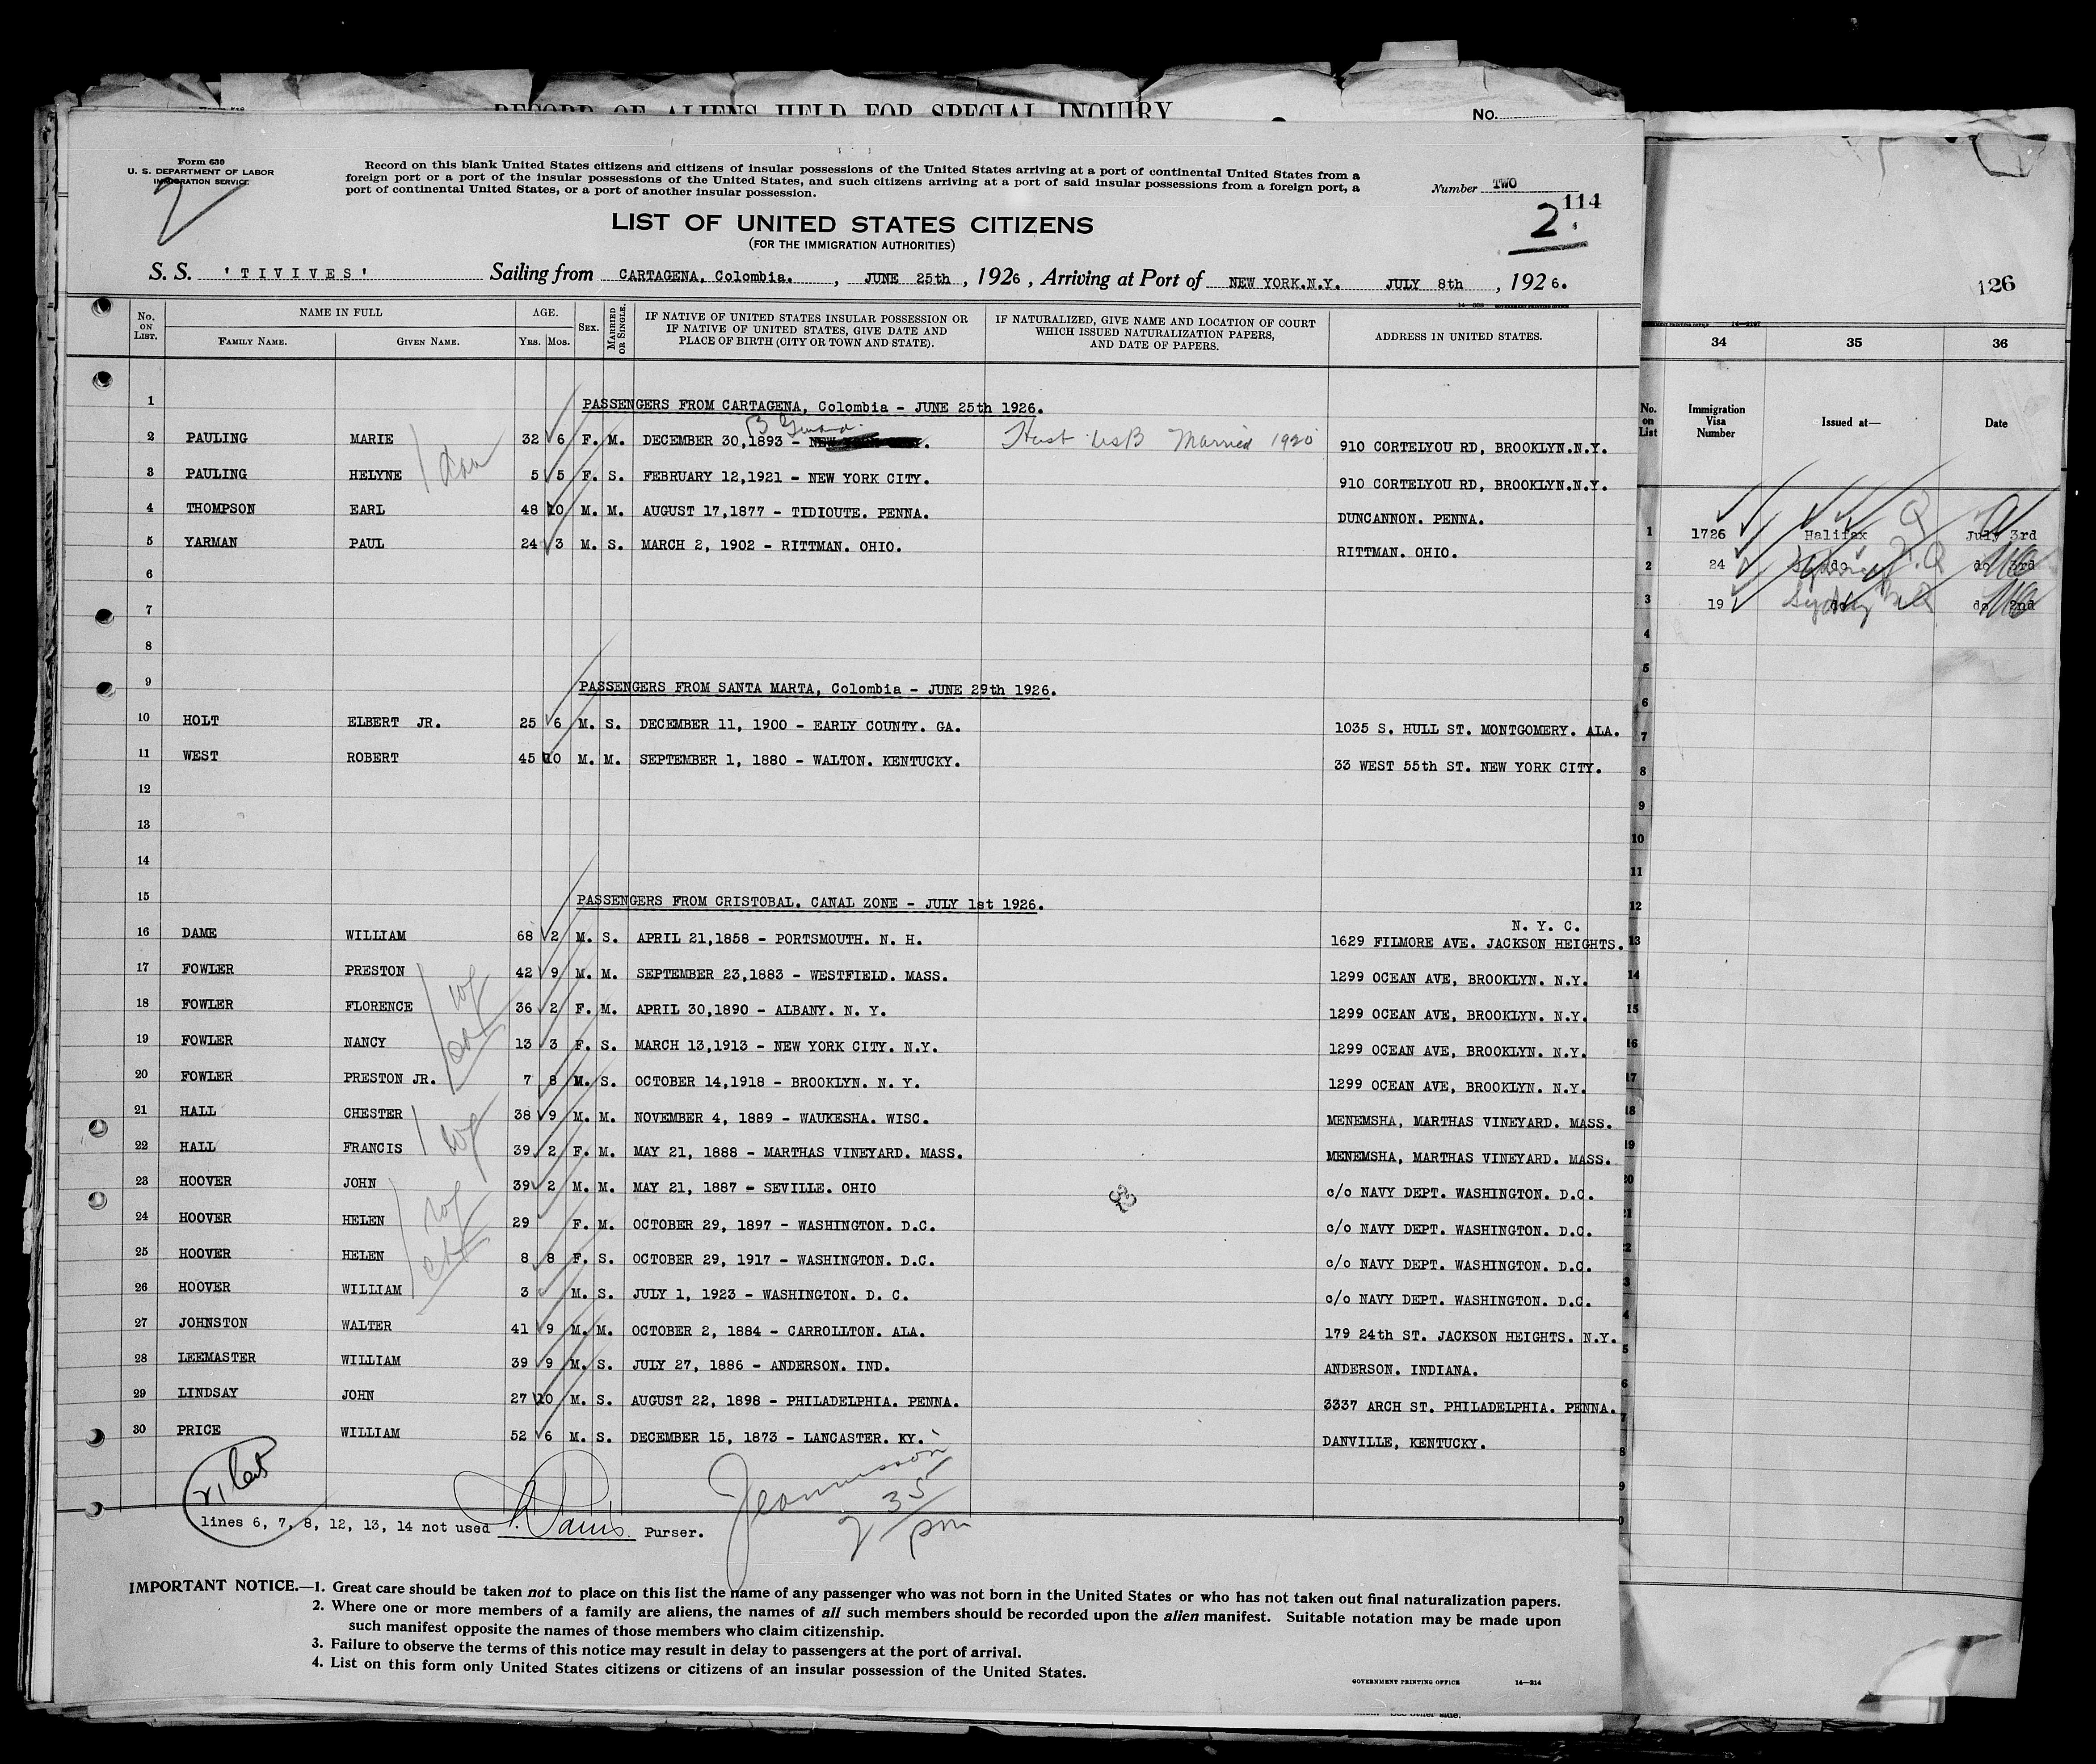 RECORD OF ALIENS HELD FOR SPECIAL INQUIRY
No.
Form 630
U. S. DEPARTMENT OF LABOR
IMMIGRATION SERVICE
Record on this blank United States citizens and citizens of insular possessions of the United States arriving at a port of continental United States from a
foreign port or a port of the insular possessions of the United States, and such citizens arriving at a port of said insular possessions from a foreign port, a
port of continental United States, or a port of another insular possession.
Number TWO
114
2
LIST OF UNITED STATES CITIZENS
(FOR THE IMMIGRATION AUTHORITIES)
S. S. 'TIVIVES' Sailing from CARTAGENA, Colombia. , JUNE 25th , 1926 , Arriving at Port of NEW YORK.N.Y. JULY 8th , 1926.
No. ON LIST. NAME IN FULL FAMILY NAME. GIVEN NAME. AGE. Yrs. Mos. SEX. MARRIED OR SINGLE. IF NATIVE OF UNITED STATES INSULAR POSSESSION OR IF NATIVE OF UNITED STATES, GIVE DATE AND PLACE OF BIRTH (CITY OR TOWN AND STATE). IF NATURALIZED, GIVE NAME AND LOCATION OF COURT WHICH ISSUED NATURALIZATION PAPERS, AND DATE OF PAPERS. ADDRESS IN UNITED STATES.
1 PASSENGERS FROM CARTAGENA, Colombia - JUNE 25th 1926.
2 PAULING MARIE 32 6 F. M. DECEMBER 30,1893 - Husb USB Married 1920 910 CORTELYOU RD, BROOKLYN.N.Y.
3 PAULING HELYNE 5 5 F. S. FEBRUARY 12,1921 - NEW YORK CITY. 910 CORTELYOU RD, BROOKLYN.N.Y.
4 THOMPSON EARL 48 10 M. M. AUGUST 17,1877 - TIDIOUTE. PENNA. DUNCANNON. PENNA.
5 YARMAN PAUL 24 3 M. S. MARCH 2, 1902 - RITTMAN. OHIO. RITTMAN. OHIO.
6
7
8
9 PASSENGERS FROM SANTA MARTA, Colombia - JUNE 29th 1926.
10 HOLT ELBERT JR. 25 6 M. S. DECEMBER 11, 1900 - EARLY COUNTY. GA. 1035 S. HULL ST. MONTGOMERY. ALA.
11 WEST ROBERT 45 10 M. M. SEPTEMBER 1, 1880 - WALTON. KENTUCKY. 33 WEST 55th ST. NEW YORK CITY.
12
13
14
15 PASSENGERS FROM CRISTOBAL. CANAL ZONE - JULY 1st 1926.
N. Y. C.
16 DAME WILLIAM 68 2 M. S. APRIL 21,1858 - PORTSMOUTH. N. H. 1629 FILMORE AVE. JACKSON HEIGHTS.
17 FOWLER PRESTON 42 9 M. M. SEPTEMBER 23,1883 - WESTFIELD. MASS. 1299 OCEAN AVE, BROOKLYN. N.Y.
18 FOWLER FLORENCE 36 2 F. M. APRIL 30,1890 - ALBANY. N. Y. 1299 OCEAN AVE, BROOKLYN. N.Y.
19 FOWLER NANCY 13 3 F. S. MARCH 13,1913 - NEW YORK CITY. N.Y. 1299 OCEAN AVE, BROOKLYN. N.Y.
20 FOWLER PRESTON JR. 7 8 M. S. OCTOBER 14,1918 - BROOKLYN. N. Y. 1299 OCEAN AVE, BROOKLYN. N.Y.
21 HALL CHESTER 38 9 M. M. NOVEMBER 4, 1889 - WAUKESHA. WISC. MENEMSHA, MARTHAS VINEYARD. MASS.
22 HALL FRANCIS 39 2 F. M. MAY 21, 1888 - MARTHAS VINEYARD. MASS. MENEMSHA, MARTHAS VINEYARD. MASS.
23 HOOVER JOHN 39 2 M. M. MAY 21, 1887 - SEVILLE. OHIO c/o NAVY DEPT. WASHINGTON. D.C.
24 HOOVER HELEN 29 F. M. OCTOBER 29, 1897 - WASHINGTON. D.C. c/o NAVY DEPT. WASHINGTON. D.C.
25 HOOVER HELEN 8 8 F. S. OCTOBER 29, 1917 - WASHINGTON. D.C. c/o NAVY DEPT. WASHINGTON. D.C.
26 HOOVER WILLIAM 3 M. S. JULY 1, 1923 - WASHINGTON. D. C. c/o NAVY DEPT. WASHINGTON. D.C.
27 JOHNSTON WALTER 41 9 M. M. OCTOBER 2, 1884 - CARROLLTON. ALA. 179 24th ST. JACKSON HEIGHTS. N.Y.
28 LEEMASTER WILLIAM 39 9 M. S. JULY 27, 1886 - ANDERSON. IND. ANDERSON. INDIANA.
29 LINDSAY JOHN 27 10 M. S. AUGUST 22, 1898 - PHILADELPHIA. PENNA. 3337 ARCH ST. PHILADELPHIA. PENNA.
30 PRICE WILLIAM 52 6 M. S. DECEMBER 15, 1873 - LANCASTER. KY. DANVILLE, KENTUCKY.
lines 6, 7, 8, 12, 13, 14 not used Purser.
2 35 pm
IMPORTANT NOTICE.—1. Great care should be taken not to place on this list the name of any passenger who was not born in the United States or who has not taken out final naturalization papers.
2. Where one or more members of a family are aliens, the names of all such members should be recorded upon the alien manifest. Suitable notation may be made upon
such manifest opposite the names of those members who claim citizenship.
3. Failure to observe the terms of this notice may result in delay to passengers at the port of arrival.
4. List on this form only United States citizens or citizens of an insular possession of the United States.
GOVERNMENT PRINTING OFFICE 14—314
126
34 35 36
No. on List Immigration Visa Number Issued at— Date
1 1726 Halifax July 3rd
2 24 do 3rd
3 19 Sydney do 2nd
4
5
6
7
8
9
10
11
12
13
14
15
16
17
18
19
20